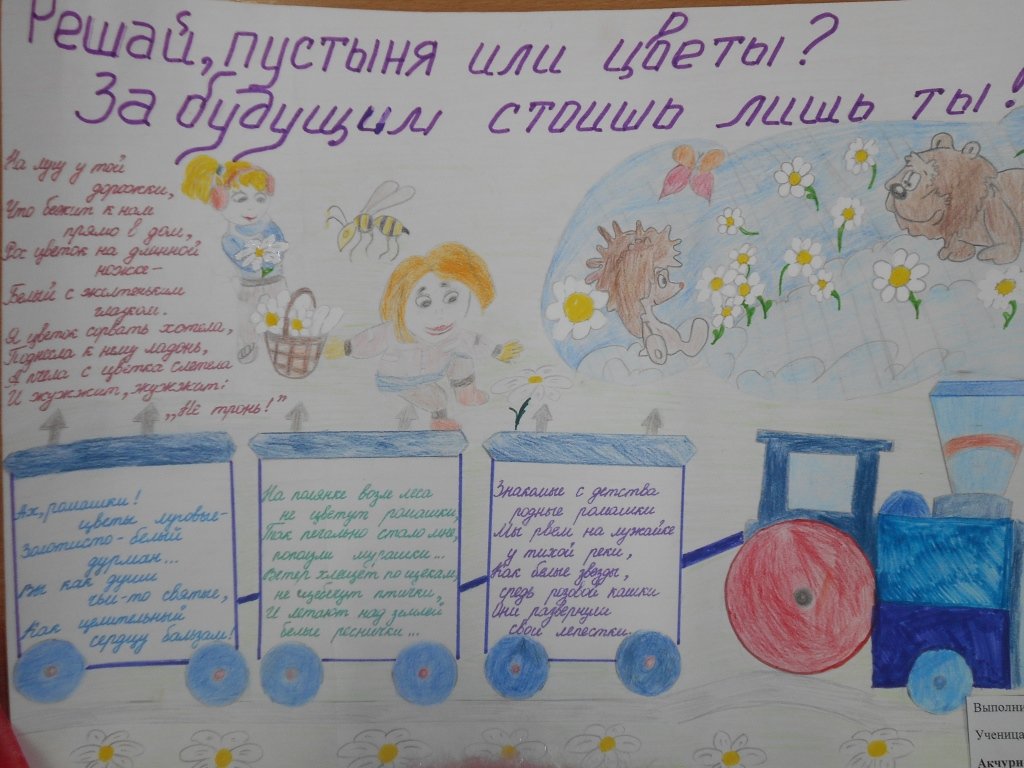 Решай, пустыня или цветы?
За будущим стоишь лишь ты!
На лугу у той
дорожки,
Что бежит к нам
прямо в дом,
Рос цветок на длинной
ножке-
Белый с желтеньким
глазком.
Я цветок сорвать хотела,
Поднесла к нему ладонь,
А пчела с цветка слетела
И жужжит, жужжит:
„Не тронь!"
Ах, ромашки!
цветы луговые-
Золотисто-белый
дурман...
Вы как души
чьи-то святые,
Как целительный
сердцу бальзам!
На полянке возле леса
не цветут ромашки,
Так печально стало мне,
поползли мурашки...
Ветер хлещет по щекам,
не щебечут птички,
И летают над землёй
белые реснички...
Знакомые с детства
родные ромашки
Мы рвем на лужайке
у тихой реки,
Как белые звезды,
средь розовой кашки
Они развернули
свои лепестки.
Выполни
Ученица
Акчури